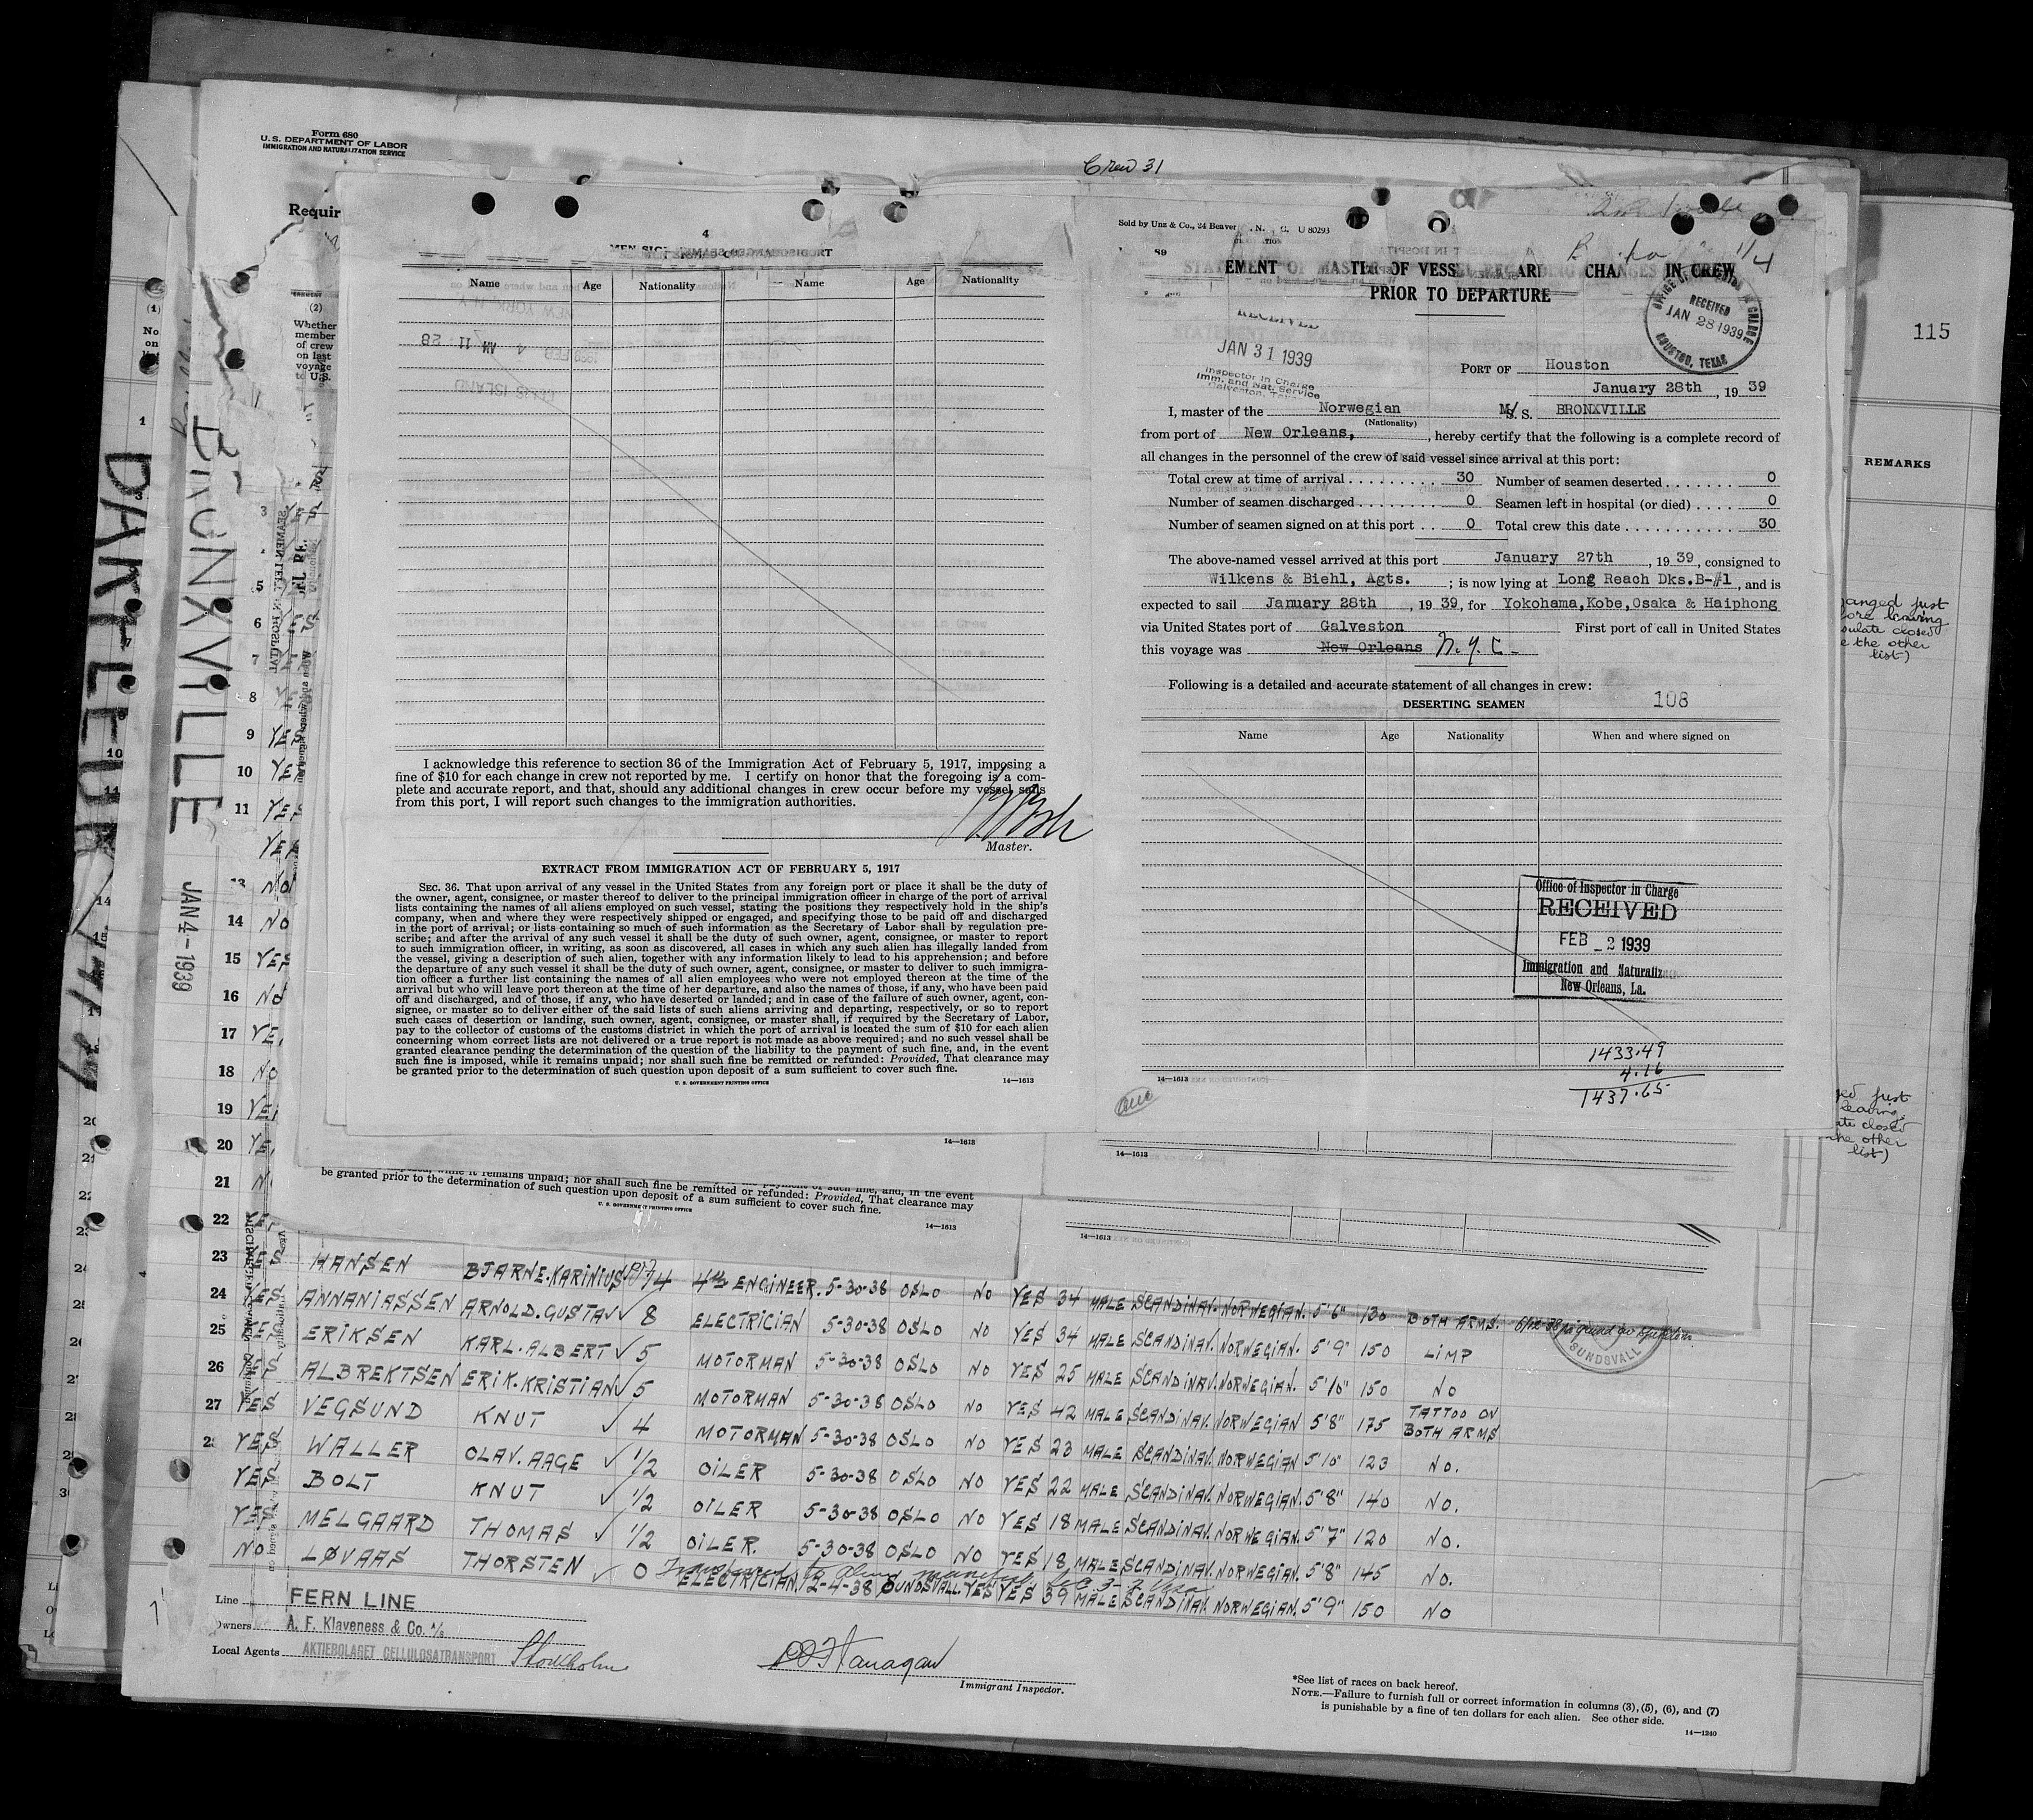 Form 680
U. S. DEPARTMENT OF LABOR
IMMIGRATION AND NATURALIZATION SERVICE
Crew 31
Requir
(2)
Whether
member
of crew
on last
voyage
to U.S.
(1)
No.
on
DART-LEUR
BRONXVILLE
JAN 4 - 1939
115
REMARKS
4
Name Age Nationality Name Age Nationality
I acknowledge this reference to section 36 of the Immigration Act of February 5, 1917, imposing a
fine of $10 for each change in crew not reported by me. I certify on honor that the foregoing is a com-
plete and accurate report, and that, should any additional changes in crew occur before my vessel sails
from this port, I will report such changes to the immigration authorities.
Master.
EXTRACT FROM IMMIGRATION ACT OF FEBRUARY 5, 1917
SEC. 36. That upon arrival of any vessel in the United States from any foreign port or place it shall be the duty of
the owner, agent, consignee, or master thereof to deliver to the principal immigration officer in charge of the port of arrival
lists containing the names of all aliens employed on such vessel, stating the positions they respectively hold in the ship's
company, when and where they were respectively shipped or engaged, and specifying those to be paid off and discharged
in the port of arrival; or lists containing so much of such information as the Secretary of Labor shall by regulation pre-
scribe; and after the arrival of any such vessel it shall be the duty of such owner, agent, consignee, or master to report
to such immigration officer, in writing, as soon as discovered, all cases in which any such alien has illegally landed from
the vessel, giving a description of such alien, together with any information likely to lead to his apprehension; and before
the departure of any such vessel it shall be the duty of such owner, agent, consignee, or master to deliver to such immigra-
tion officer a further list containing the names of all alien employees who were not employed thereon at the time of the
arrival but who will leave port thereon at the time of her departure, and also the names of those, if any, who have been paid
off and discharged, and of those, if any, who have deserted or landed; and in case of the failure of such owner, agent, con-
signee, or master so to deliver either of the said lists of such aliens arriving and departing, respectively, or so to report
such cases of desertion or landing, such owner, agent, consignee, or master shall, if required by the Secretary of Labor,
pay to the collector of customs of the customs district in which the port of arrival is located the sum of $10 for each alien
concerning whom correct lists are not delivered or a true report is not made as above required; and no such vessel shall be
granted clearance pending the determination of the question of the liability to the payment of such fine, and, in the event
such fine is imposed, while it remains unpaid; nor shall such fine be remitted or refunded: Provided, That clearance may
be granted prior to the determination of such question upon deposit of a sum sufficient to cover such fine.
U. S. GOVERNMENT PRINTING OFFICE 14—1613
Sold by Unz & Co., 24 Beaver U 80293
1/4
EMENT OF MASTER OF VESS ARD CHAN IN CREW
PRIOR TO DEPARTURE
RECEIVED
JAN 31 1939
Inspector in Charge
Imm. and Nat. Service
Galveston, Texas
RECEIVED
JAN 28 1939
HOUSTON, TEXAS
PORT OF Houston
January 28th, 1939
I, master of the Norwegian M/S. S. BRONXVILLE
(Nationality)
from port of New Orleans, , hereby certify that the following is a complete record of
all changes in the personnel of the crew of said vessel since arrival at this port:
Total crew at time of arrival 30 Number of seamen deserted 0
Number of seamen discharged 0 Seamen left in hospital (or died) 0
Number of seamen signed on at this port 0 Total crew this date 30
The above-named vessel arrived at this port January 27th, 1939, consigned to
Wilkens & Biehl, Agts. ; is now lying at Long Reach Dks.B-#1, and is
expected to sail January 28th, 1939, for Yokohama,Kobe,Osaka & Haiphong
via United States port of Galveston First port of call in United States
this voyage was New Orleans N.Y.C.
Following is a detailed and accurate statement of all changes in crew:
DESERTING SEAMEN 108
Name Age Nationality When and where signed on
Office of Inspector in Charge
RECEIVED
FEB _ 2 1939
Immigration and Naturaliz
New Orleans, La.
1433.49
4.16
1437.65
14—1613
anged just
ore leaving
sulate closed
e the other
list)
just
leaving
ate closed
the other
list)
14—1613
14—1613
be granted prior to the determination of such question upon deposit of a sum sufficient to cover such fine.
U. S. GOVERNMENT PRINTING OFFICE
14—1613
14—1613
YES HANSEN BJARNE.KARINIUS 14 4th ENGINEER. 5-30-38 OSLO NO YES 34 MALE SCANDINAV. NORWEGIAN. 5'6" 130 BOTH ARMS.
YES ANNANIASSEN ARNOLD.GUSTAV 8 ELECTRICIAN 5-30-38 OSLO NO YES 34 MALE SCANDINAV. NORWEGIAN. 5'9" 150 LIMP
SUNDSVALL
YES ERIKSEN KARL.ALBERT 5 MOTORMAN 5-30-38 OSLO NO YES 25 MALE SCANDINAV. NORWEGIAN. 5'10" 150 NO
YES ALBREKTSEN ERIK.KRISTIAN 5 MOTORMAN 5-30-38 OSLO NO YES 42 MALE SCANDINAV. NORWEGIAN 5'8" 175 TATTOO ON BOTH ARMS
YES VEGSUND KNUT 4 MOTORMAN 5-30-38 OSLO NO YES 23 MALE SCANDINAV. NORWEGIAN 5'10" 123 NO.
YES WALLER OLAV.AAGE 1/2 OILER 5-30-38 OSLO NO YES 22 MALE SCANDINAV. NORWEGIAN. 5'8" 140 NO.
YES BOLT KNUT 1/2 OILER 5-30-38 OSLO NO YES 18 MALE SCANDINAV. NORWEGIAN. 5'7" 120 NO.
YES MELGAARD THOMAS 1/2 OILER. 5-30-38 OSLO NO YES 18 MALE SCANDINAV. NORWEGIAN. 5'8" 145 NO.
NO LØVAAS THORSTEN 0 ELECTRICIAN. 12-4-38 SUNDSVALL. YES YES 39 MALE SCANDINAV. NORWEGIAN. 5'9" 150 NO
Line FERN LINE
Owners A. F. Klaveness & Co. A/S
Local Agents AKTIEBOLAGET CELLULOSATRANSPORT Stockholm
Flanagan
Immigrant Inspector.
*See list of races on back hereof.
NOTE.—Failure to furnish full or correct information in columns (3), (5), (6), and (7)
is punishable by a fine of ten dollars for each alien. See other side.
14—1240